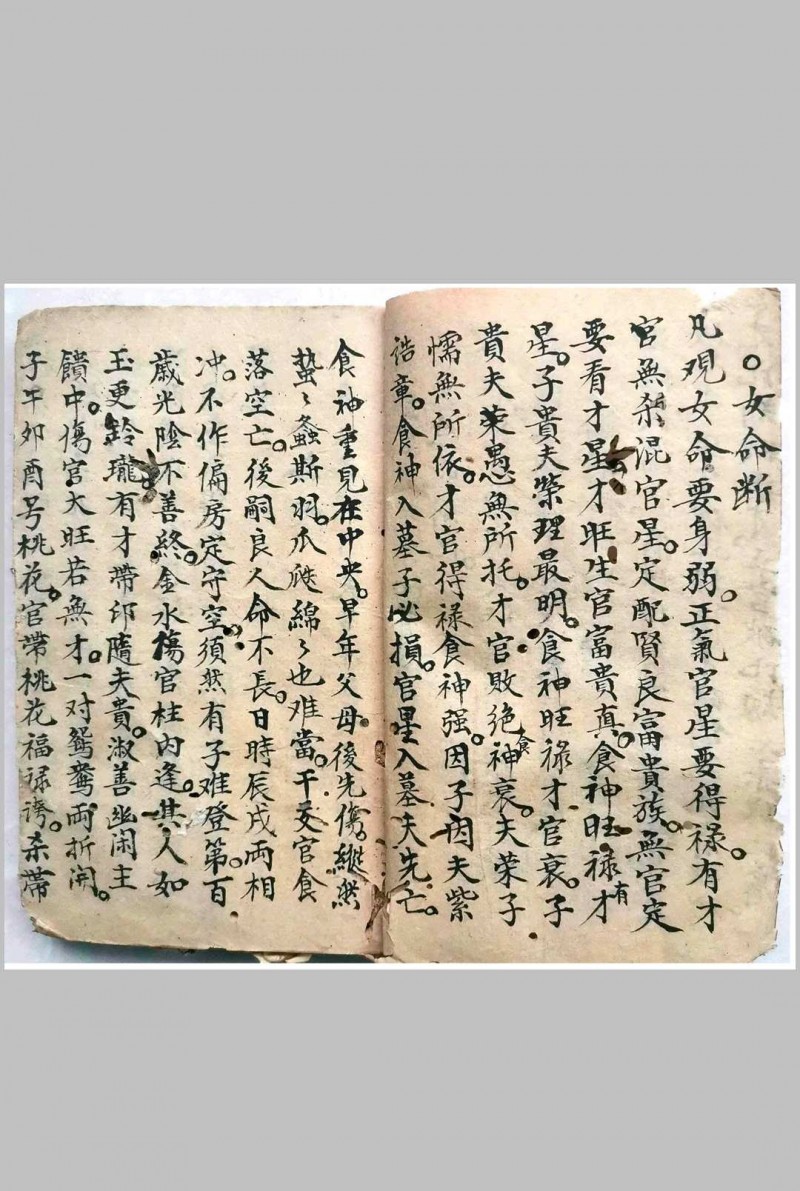 ○女命断
凡观女命要身弱。正氣官星要得禄。有才
官無杀混官星。定配賢良富貴族。無官定
要看才星才旺生官富貴真。食神旺禄才有
星。子貴夫榮理最明。食神旺禄才官衰。子
貴夫荣愚無所托。才官敗绝食神衰。夫荣子
懦無所依。才官得禄食神强。因子因夫紫
诰章。食神入墓子必損。官星入墓夫先亡。
食神重見在中央。早年父母後先傷。縱然
蟄〻螽斯羽。爪瓞綿〻也难當。干支官食
落空亡。後嗣良人命不長。日時辰戌両相
冲。不作偏房定守空。须然有子难登第。百
歲光陰不善終。金水傷官柱内逢。其人如
玉更鈴瓏有才帶印隨夫貴。淑善幽闲主
饋中。傷官大旺若無才。一对鸳鸯両折開。
子午卯酉号桃花。官帶桃花福禄誇。杀帶